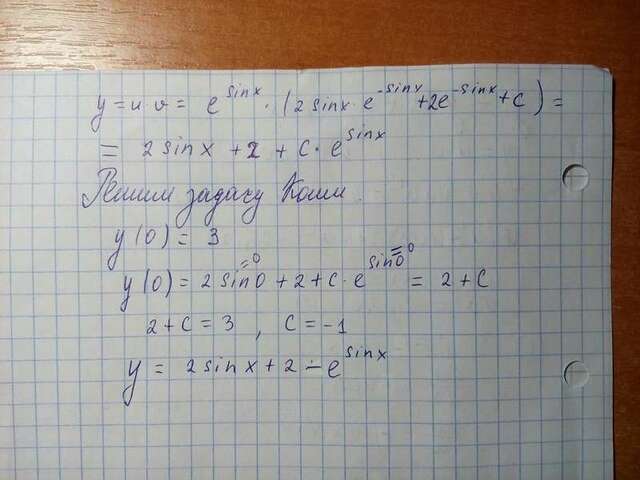 y = u·v = e^sinx · (2 sinx · e^-sinx + 2e^-sinx + C) =
= 2 sinx + 2 + C · e^sinx
Решим задачу Коши.
y(0) = 3
y(0) = 2 sin0 ⁼⁰ + 2 + C · e^sin0 ⁼⁰ = 2 + C
2 + C = 3 , C = -1
y = 2 sinx + 2 - e^sinx